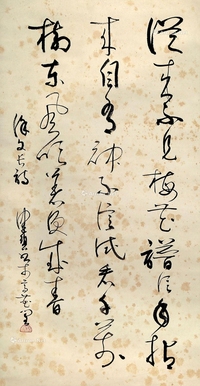 從来不見梅花譜信手拈
来自有神不信試看千萬
樹東風吹著便成春
徐文長詩